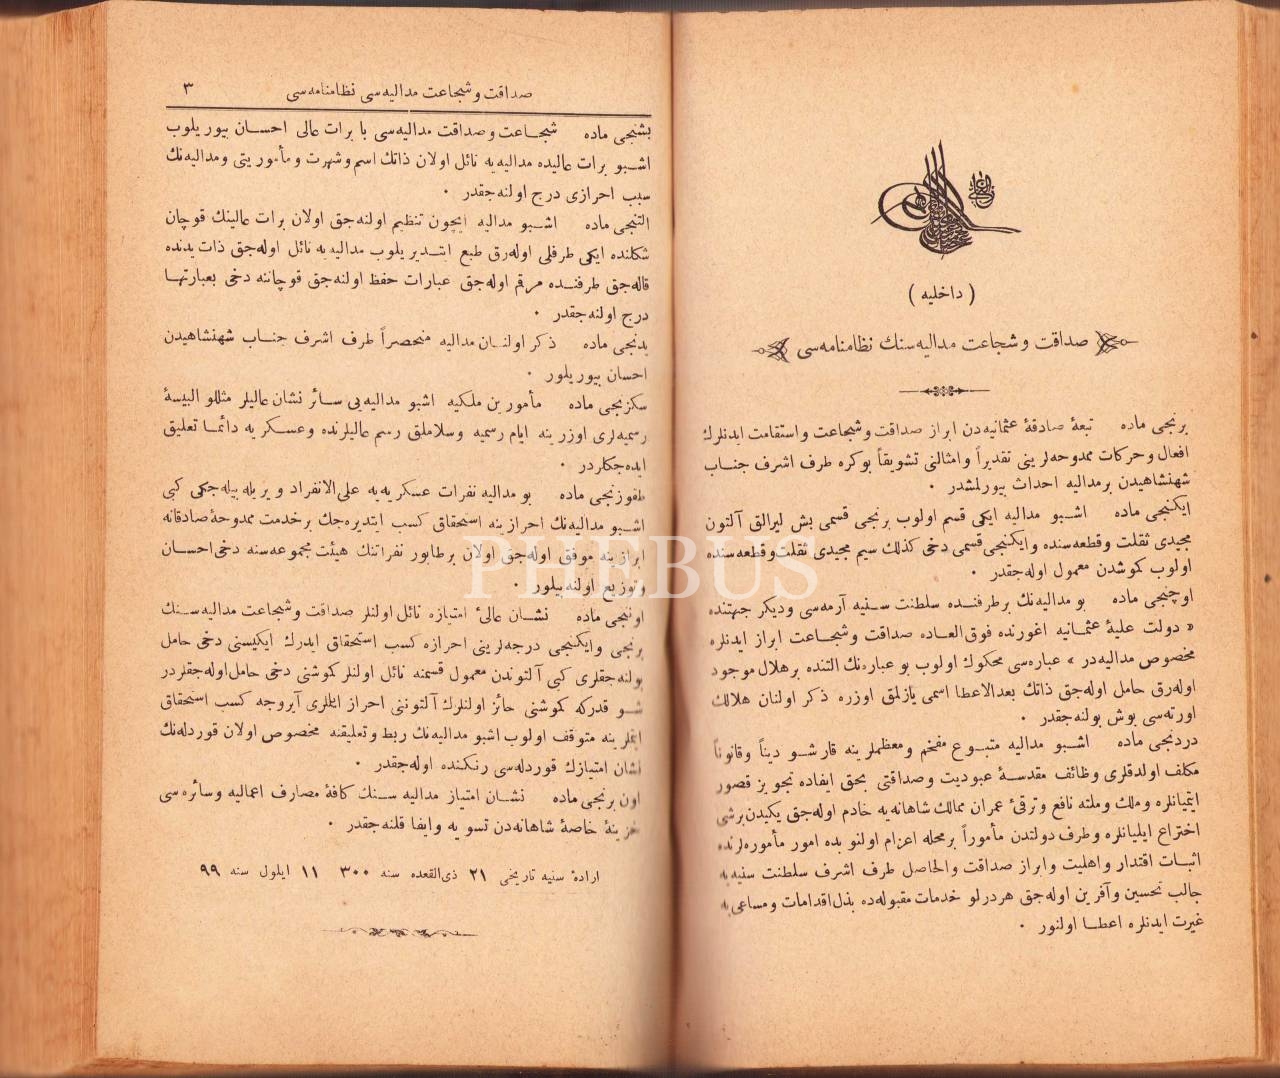 ( داخلیه )
صداقت و شجاعت مدالیه‌سنك نظامنامه‌سی
برنجی ماده تبعۀ صادقۀ عثمانیه‌دن ابراز صداقت و شجاعت و استقامت ایدنلرك
افعال و حركات ممدوحه‌لرینی تقدیراً و امثالنی تشویقاً بوكره طرف اشرف جناب
شهنشاهیدن برمدالیه احداث بیورلمشدر .
ایكنجی ماده اشبو مدالیه ایكی قسم اولوب برنجی قسمی بش لیرالق آلتون
مجیدی ثقلت و قطعه‌سنده و ایكنجی قسمی دخی كذلك سیم مجیدی ثقلت و قطعه‌سنده
اولوب كموشدن معمول اوله‌جقدر .
اوچنجی ماده بو مدالیه‌نك برطرفنده سلطنت سنیه آرمه‌سی و دیكر جهتنده
« دولت علیۀ عثمانیه اغورنده فوق‌العاده صداقت و شجاعت ابراز ایدنلره
مخصوص مدالیه‌در » عباره‌سی محكوك اولوب بو عباره‌نك التنده برهلال موجود
اوله‌رق حامل اوله‌جق ذاتك بعدالاعطا اسمی یازلمق اوزره ذكر اولنان هلالك
اورته‌سی بوش بولنه‌جقدر .
دردنجی ماده اشبو مدالیه متبوع مفخم و معظملرینه قارشو دیناً و قانوناً
مكلف اولدقلری وظائف مقدسۀ عبودیت و صداقتی بحق ایفاده تجویز قصور
ایتمیانلره و ملك و ملته نافع و ترقئ عمران ممالك شاهانه‌یه خادم اوله‌جق یكیدن برشی
اختراع ایلیانلره و طرف دولتدن مأموراً برمحله اعزام اولنوبده امور مأموره‌لرنده
اثبات اقتدار و اهلیت و ابراز صداقت و الحاصل طرف اشرف سلطنت سنیه‌یه
جالب تحسین و آفرین اوله‌جق هردرلو خدمات مقبوله‌ده بذل اقدامات و مساعی یه
غیرت ایدنلره اعطا اولنور .
صداقت و شجاعت مدالیه‌سی نظامنامه‌سی ٣
بشنجی ماده شجاعت و صداقت مدالیه‌سی با برات عالی احسان بیوریلوب
اشبو برات عالیده مدالیه‌یه نائل اولان ذاتك اسم و شهرت و مأموریتی و مدالیه‌نك
سبب احرازی درج اولنه‌جقدر .
التنجی ماده اشبو مدالیه ایچون تنظیم اولنه‌جق اولان برات عالینك قوچان
شكلنده ایكی طرفلی اوله‌رق طبع ایتدیریلوب مدالیه‌یه نائل اوله‌جق ذات یدنده
قاله‌جق طرفنده مرقم اوله‌جق عبارات حفظ اولنه‌جق قوچاننه دخی بعبارتها
درج اولنه‌جقدر .
یدنجی ماده ذكر اولنان مدالیه منحصراً طرف اشرف جناب شهنشاهیدن
احسان بیوریلور .
سكزنجی ماده مأمورین ملكیه اشبو مدالیه‌یی سائر نشان عالیلر مثللو البیسۀ
رسمیه‌لری اوزرینه ایام رسمیه و سلاملق رسم عالیلرنده و عسكریه دائما تعلیق
ایده‌جكلردر .
طقوزنجی ماده بو مدالیه نفرات عسكریه‌یه علی‌الانفراد ویریله بیله‌جكی كبی
اشبو مدالیه‌نك احرازینه استحقاق كسب ایتدیره‌جك برخدمت ممدوحۀ صادقانه
ابرازینه موفق اوله‌جق اولان برطابور نفراتنك هیئت مجموعه‌سنه دخی احسان
و توزیع اولنه‌بیلور .
اونجی ماده نشان عالئ امتیازه نائل اولنلر صداقت و شجاعت مدالیه سنك
برنجی و ایكنجی درجه‌لرینی احرازه كسب استحقاق ایدرك ایكیسنی دخی حامل
بولنه‌جقلری كبی آلتوندن معمول قسمنه نائل اولنلر كموشنی دخی حامل اوله‌جقلردر
شو قدركه كموشنی حائز اولنلرك آلتوننی احراز ایتملری آیروجه كسب استحقاق
ایتملرینه متوقف اولوب اشبو مدالیه‌نك ربط و تعلیقنه مخصوص اولان قوردله‌نك
نشان امتیازك قوردله‌سی رنكنده اوله‌جقدر .
اون برنجی ماده نشان امتیاز مدالیه سنك كافۀ مصارف اعمالیه و سائره‌سی
خزینۀ خاصۀ شاهانه‌دن تسویه و ایفا قلنه‌جقدر .
ارادۀ سنیه تاریخی ٢١ ذی‌القعده سنه ٣٠٠ ١١ ایلول سنه ٩٩
PHEBUS